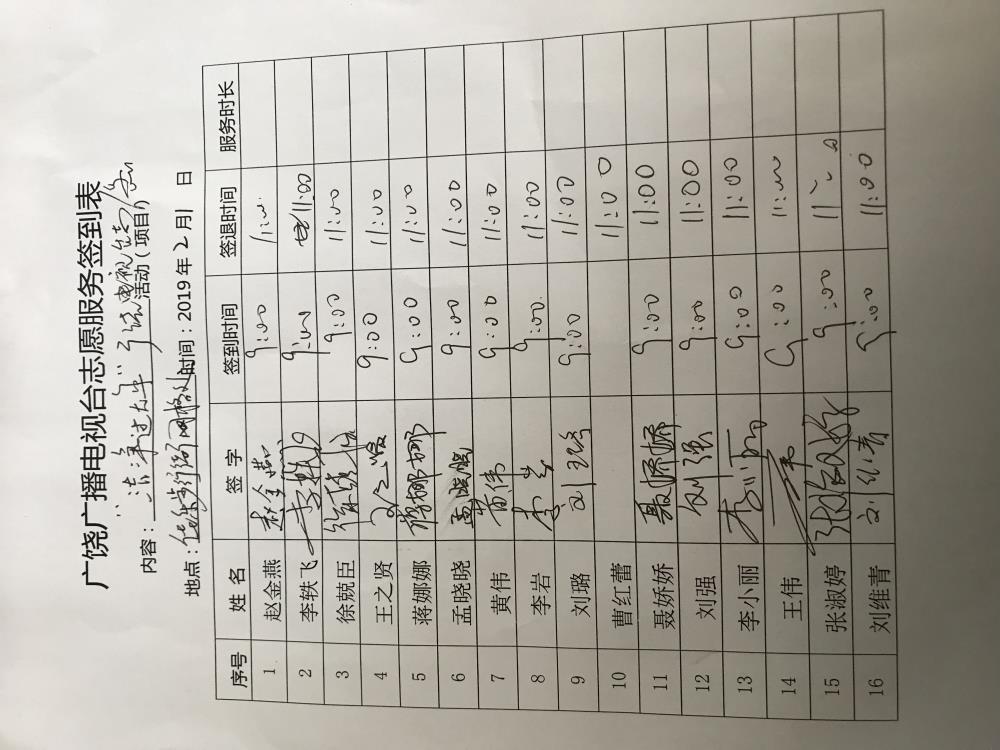 广饶广播电视台志愿服务签到表
内容： 活动（项目）
地点： 时间：2019年2月1日
序号 姓名 签字 签到时间 签退时间 服务时长
1 赵金燕 赵金燕 9:00 11:00
2 李轶飞 李轶飞 9:00 11:00
3 徐兢臣 9:00 11:00
4 王之贤 王之贤 9:00 11:00
5 蒋娜娜 蒋娜娜 9:00 11:00
6 孟晓晓 孟晓晓 9:00 11:00
7 黄伟 黄伟 9:00 11:00
8 李岩 李岩 9:00 11:00
9 刘璐 刘璐 9:00 11:00
10 曹红蕾 11:00
11 聂娇娇 聂娇娇 9:00 11:00
12 刘强 刘强 9:00 11:00
13 李小丽 李小丽 9:00 11:00
14 王伟 9:00 11:00
15 张淑婷 张淑婷 9:00 11:00
16 刘维青 刘维青 9:00 11:00